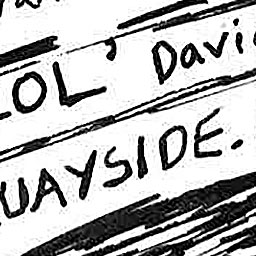 OL' Davi
UAYSIDE.